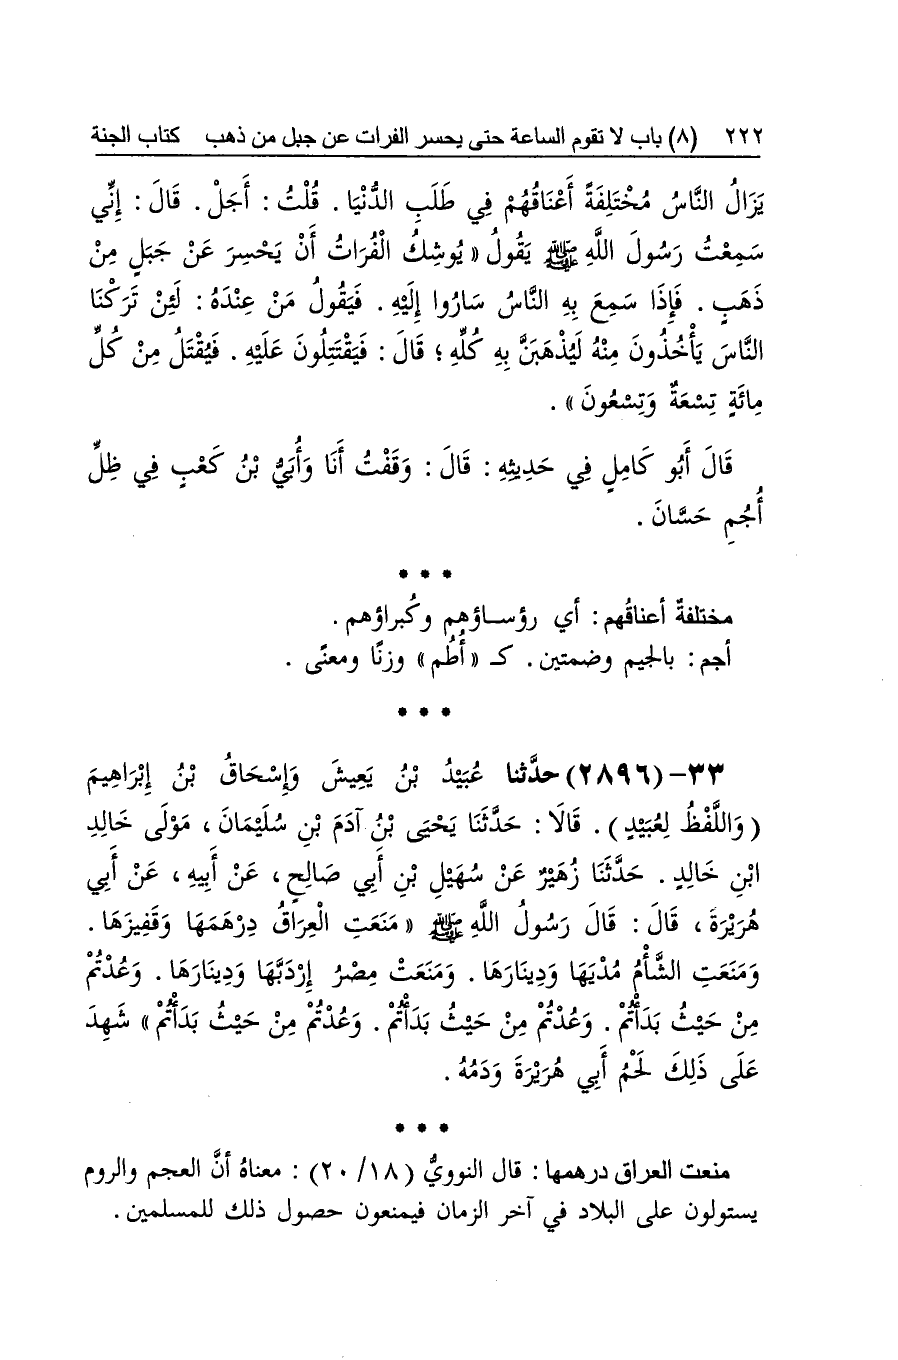 ٢٢٢ (٨) باب لا تقوم الساعة حتى يحسر الفرات عن جبل من ذهب كتاب الجنة
يَزَالُ النَّاسُ مُخْتَلِفَةً أَعْنَاقُهُمْ فِي طَلَبِ الدُّنْيَا . قُلْتُ : أَجَلْ . قَالَ : إِنِّي
سَمِعْتُ رَسُولَ اللَّهِ ﷺ يَقُولُ « يُوشِكُ الْفُرَاتُ أَنْ يَحْسِرَ عَنْ جَبَلٍ مِنْ
ذَهَبٍ . فَإِذَا سَمِعَ بِهِ النَّاسُ سَارُوا إِلَيْهِ . فَيَقُولُ مَنْ عِنْدَهُ : لَئِنْ تَرَكْنَا
النَّاسَ يَأْخُذُونَ مِنْهُ لَيُذْهَبَنَّ بِهِ كُلِّهِ ؛ قَالَ : فَيَقْتَتِلُونَ عَلَيْهِ . فَيُقْتَلُ مِنْ كُلِّ
مِائَةٍ تِسْعَةٌ وَتِسْعُونَ » .
قَالَ أَبُو كَامِلٍ فِي حَدِيثِهِ : قَالَ : وَقَفْتُ أَنَا وَأُبَيُّ بْنُ كَعْبٍ فِي ظِلِّ
أُجُمِ حَسَّانَ .
* * *
مختلفةٌ أعناقُهم : أي رؤساؤهم وكُبراؤهم .
أجم : بالجيم وضمتين . كـ « أُطُم » وزنًا ومعنًى .
* * *
٣٣-(٢٨٩٦) حدَّثنا عُبَيْدُ بْنُ يَعِيشَ وَإِسْحَاقُ بْنُ إِبْرَاهِيمَ
( وَاللَّفْظُ لِعُبَيْدٍ ) . قَالَا : حَدَّثَنَا يَحْيَى بْنُ آدَمَ بْنِ سُلَيْمَانَ ، مَوْلَى خَالِدِ
ابْنِ خَالِدٍ . حَدَّثَنَا زُهَيْرٌ عَنْ سُهَيْلِ بْنِ أَبِي صَالِحٍ ، عَنْ أَبِيهِ ، عَنْ أَبِي
هُرَيْرَةَ ، قَالَ : قَالَ رَسُولُ اللَّهِ ﷺ « مَنَعَتِ الْعِرَاقُ دِرْهَمَهَا وَقَفِيزَهَا .
وَمَنَعَتِ الشَّأْمُ مُدْيَهَا وَدِينَارَهَا . وَمَنَعَتْ مِصْرُ إِرْدَبَّهَا وَدِينَارَهَا . وَعُدْتُمْ
مِنْ حَيْثُ بَدَأْتُمْ . وَعُدْتُمْ مِنْ حَيْثُ بَدَأْتُمْ . وَعُدْتُمْ مِنْ حَيْثُ بَدَأْتُمْ » شَهِدَ
عَلَى ذَلِكَ لَحْمُ أَبِي هُرَيْرَةَ وَدَمُهُ .
* * *
منعت العراق درهمها : قال النوويُّ (١٨/ ٢٠) : معناهُ أنَّ العجم والروم
يستولون على البلاد في آخر الزمان فيمنعون حصول ذلك للمسلمين .